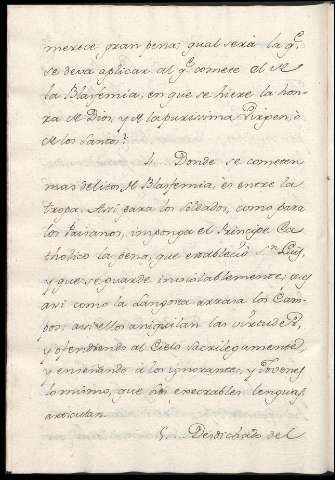 merece gran pena; qual será la q.e
se deva aplicar al q.e comete el de
la Blasfemia, en que se hiere la hon-
ra de Dios, y de la purissima Virgen, ò
de los Santos?
4... Donde se cometen
mas delitos de Blasfemia, es entre la
tropa. Assi para los Soldados, como para
los Paisanos, imponga el Principe Ca-
tholico la pena, que estableciò S.n Luis,
y que se guarde inviolablemente;
assi como la Langosta arrasa los Cam-
pos: assi ellos aniquilan las virtudes,
y ofendiendo al Cielo sacrilegamente,
y enseñando à los ignorantes, y Jovenes
lo mismo, que sus execrables lenguas
articulan.
5... Desdichado del